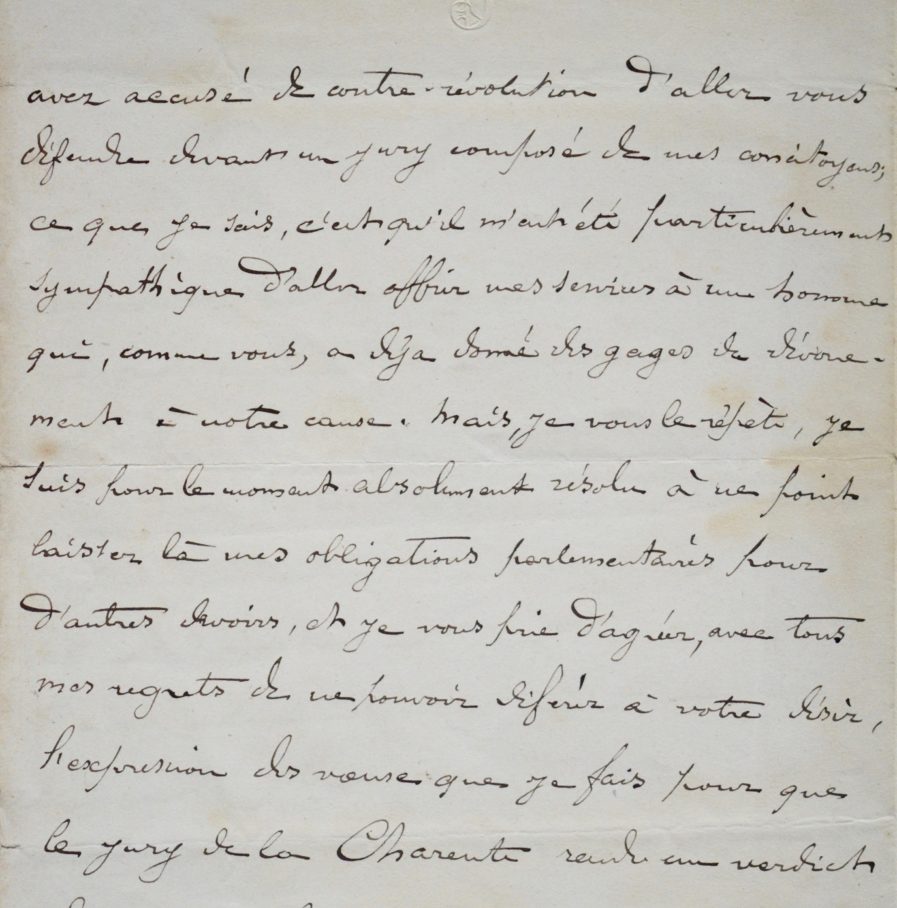 avez accusé de contre-révolution d'aller vous
défendre devant un jury composé de mes concitoyens;
ce que je sais, c'est qu'il m'eut été particulièrement
sympathique d'aller offrir mes services à un homme
qui, comme vous, a déja donné des gages de dévoue-
ment à notre cause. Mais, je vous le répète, je
suis pour le moment absolument résolu à ne point
laisser là mes obligations parlementaires pour
d'autres devoirs, et je vous prie d'agréer, avec tous
mes regrets de ne pouvoir déférer à votre désir,
l'expression des vœux que je fais pour que
le jury de la Charente rende un verdict